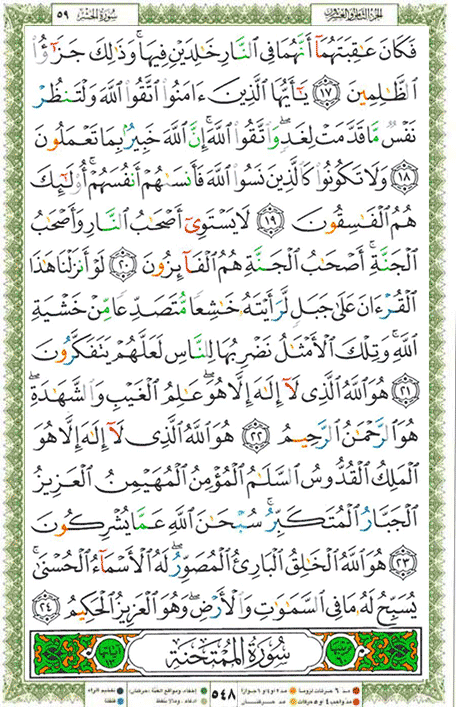 ٥٩ سُورَةُ الحَشْرِ الجزء الثامن والعشرون
فَكَانَ عَـٰقِبَتَهُمَآ أَنَّهُمَا فِى ٱلنَّارِ خَـٰلِدَيْنِ فِيهَا ۚ وَذَٰلِكَ جَزَٰٓؤُا۟
ٱلظَّـٰلِمِينَ ﴿١٧﴾ يَـٰٓأَيُّهَا ٱلَّذِينَ ءَامَنُوا۟ ٱتَّقُوا۟ ٱللَّهَ وَلْتَنظُرْ
نَفْسٌ مَّا قَدَّمَتْ لِغَدٍ ۖ وَٱتَّقُوا۟ ٱللَّهَ ۚ إِنَّ ٱللَّهَ خَبِيرٌۢ بِمَا تَعْمَلُونَ
﴿١٨﴾ وَلَا تَكُونُوا۟ كَٱلَّذِينَ نَسُوا۟ ٱللَّهَ فَأَنسَىٰهُمْ أَنفُسَهُمْ ۚ أُو۟لَـٰٓئِكَ
هُمُ ٱلْفَـٰسِقُونَ ﴿١٩﴾ لَا يَسْتَوِىٓ أَصْحَـٰبُ ٱلنَّارِ وَأَصْحَـٰبُ
ٱلْجَنَّةِ ۚ أَصْحَـٰبُ ٱلْجَنَّةِ هُمُ ٱلْفَآئِزُونَ ﴿٢٠﴾ لَوْ أَنزَلْنَا هَـٰذَا
ٱلْقُرْءَانَ عَلَىٰ جَبَلٍ لَّرَأَيْتَهُۥ خَـٰشِعًا مُّتَصَدِّعًا مِّنْ خَشْيَةِ
ٱللَّهِ ۚ وَتِلْكَ ٱلْأَمْثَـٰلُ نَضْرِبُهَا لِلنَّاسِ لَعَلَّهُمْ يَتَفَكَّرُونَ
﴿٢١﴾ هُوَ ٱللَّهُ ٱلَّذِى لَآ إِلَـٰهَ إِلَّا هُوَ ۖ عَـٰلِمُ ٱلْغَيْبِ وَٱلشَّهَـٰدَةِ ۖ
هُوَ ٱلرَّحْمَـٰنُ ٱلرَّحِيمُ ﴿٢٢﴾ هُوَ ٱللَّهُ ٱلَّذِى لَآ إِلَـٰهَ إِلَّا هُوَ
ٱلْمَلِكُ ٱلْقُدُّوسُ ٱلسَّلَـٰمُ ٱلْمُؤْمِنُ ٱلْمُهَيْمِنُ ٱلْعَزِيزُ
ٱلْجَبَّارُ ٱلْمُتَكَبِّرُ ۚ سُبْحَـٰنَ ٱللَّهِ عَمَّا يُشْرِكُونَ
﴿٢٣﴾ هُوَ ٱللَّهُ ٱلْخَـٰلِقُ ٱلْبَارِئُ ٱلْمُصَوِّرُ ۖ لَهُ ٱلْأَسْمَآءُ ٱلْحُسْنَىٰ ۚ
يُسَبِّحُ لَهُۥ مَا فِى ٱلسَّمَـٰوَٰتِ وَٱلْأَرْضِ ۖ وَهُوَ ٱلْعَزِيزُ ٱلْحَكِيمُ ﴿٢٤﴾
سُورَةُ الْمُمْتَحِنَةِ
٥٤٨